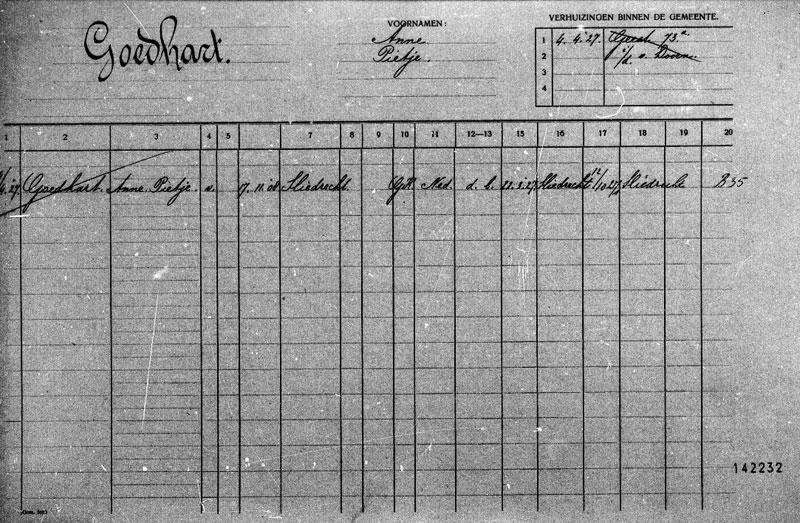 Goedhart.
VOORNAMEN:
Anne
Pietje.
VERHUIZINGEN BINNEN DE GEMEENTE.
1 4.4.27. Geest 73a
2 i/d v. Doorn
3
4
1 2 3 4 5 7 8 9 10 11 12—13 15 16 17 18 19 20
4.27 Goedhart. Anne Pietje. v. 7.11.08 Sliedrecht. Ned. d. b. 22.3.27 Sliedrecht 12/10 27 Sliedrecht B 35
142232